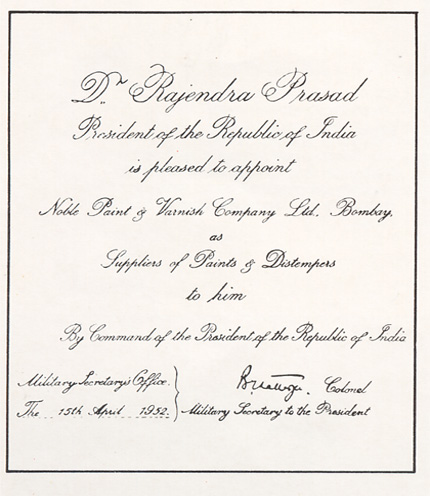 Dr. Rajendra Prasad
President of the Republic of India
is pleased to appoint
Noble Paint & Varnish Company Ltd. Bombay.
as
Suppliers of Paints & Distempers
to him
By Command of the President of the Republic of India
Military Secretary's Office.
The 15th April 1952.
Colonel
Military Secretary to the President